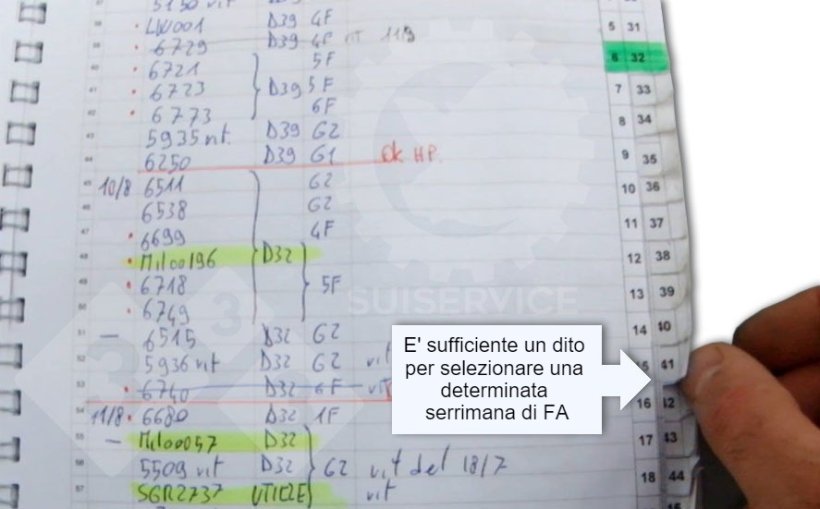 5150 vit
LW001 D39 4F
6729 D39 4F vit 11/9
6721 5F
6723 D39 5F
6773 6F
5935 vit. D39 G2
6250 D39 G1 Ok HP.
10/8 6511 G2
6538 G2
6699 4F
Mil00196 D32
6718 5F
6749
6515 D32 G2
5936 vit D32 G2 vit
6740 D32 6F
11/8 6680 D32 1F
Mil00057 D32
5509 vit D32 G2 vit del 18/7
SGR2737 vit
5 31
6 32
7 33
8 34
9 35
10 36
11 37
12 38
13 39
14 40
41
16 42
17 43
18 44
E' sufficiente un dito
per selezionare una
determinata
serrimana di FA
333
SUISERVICE